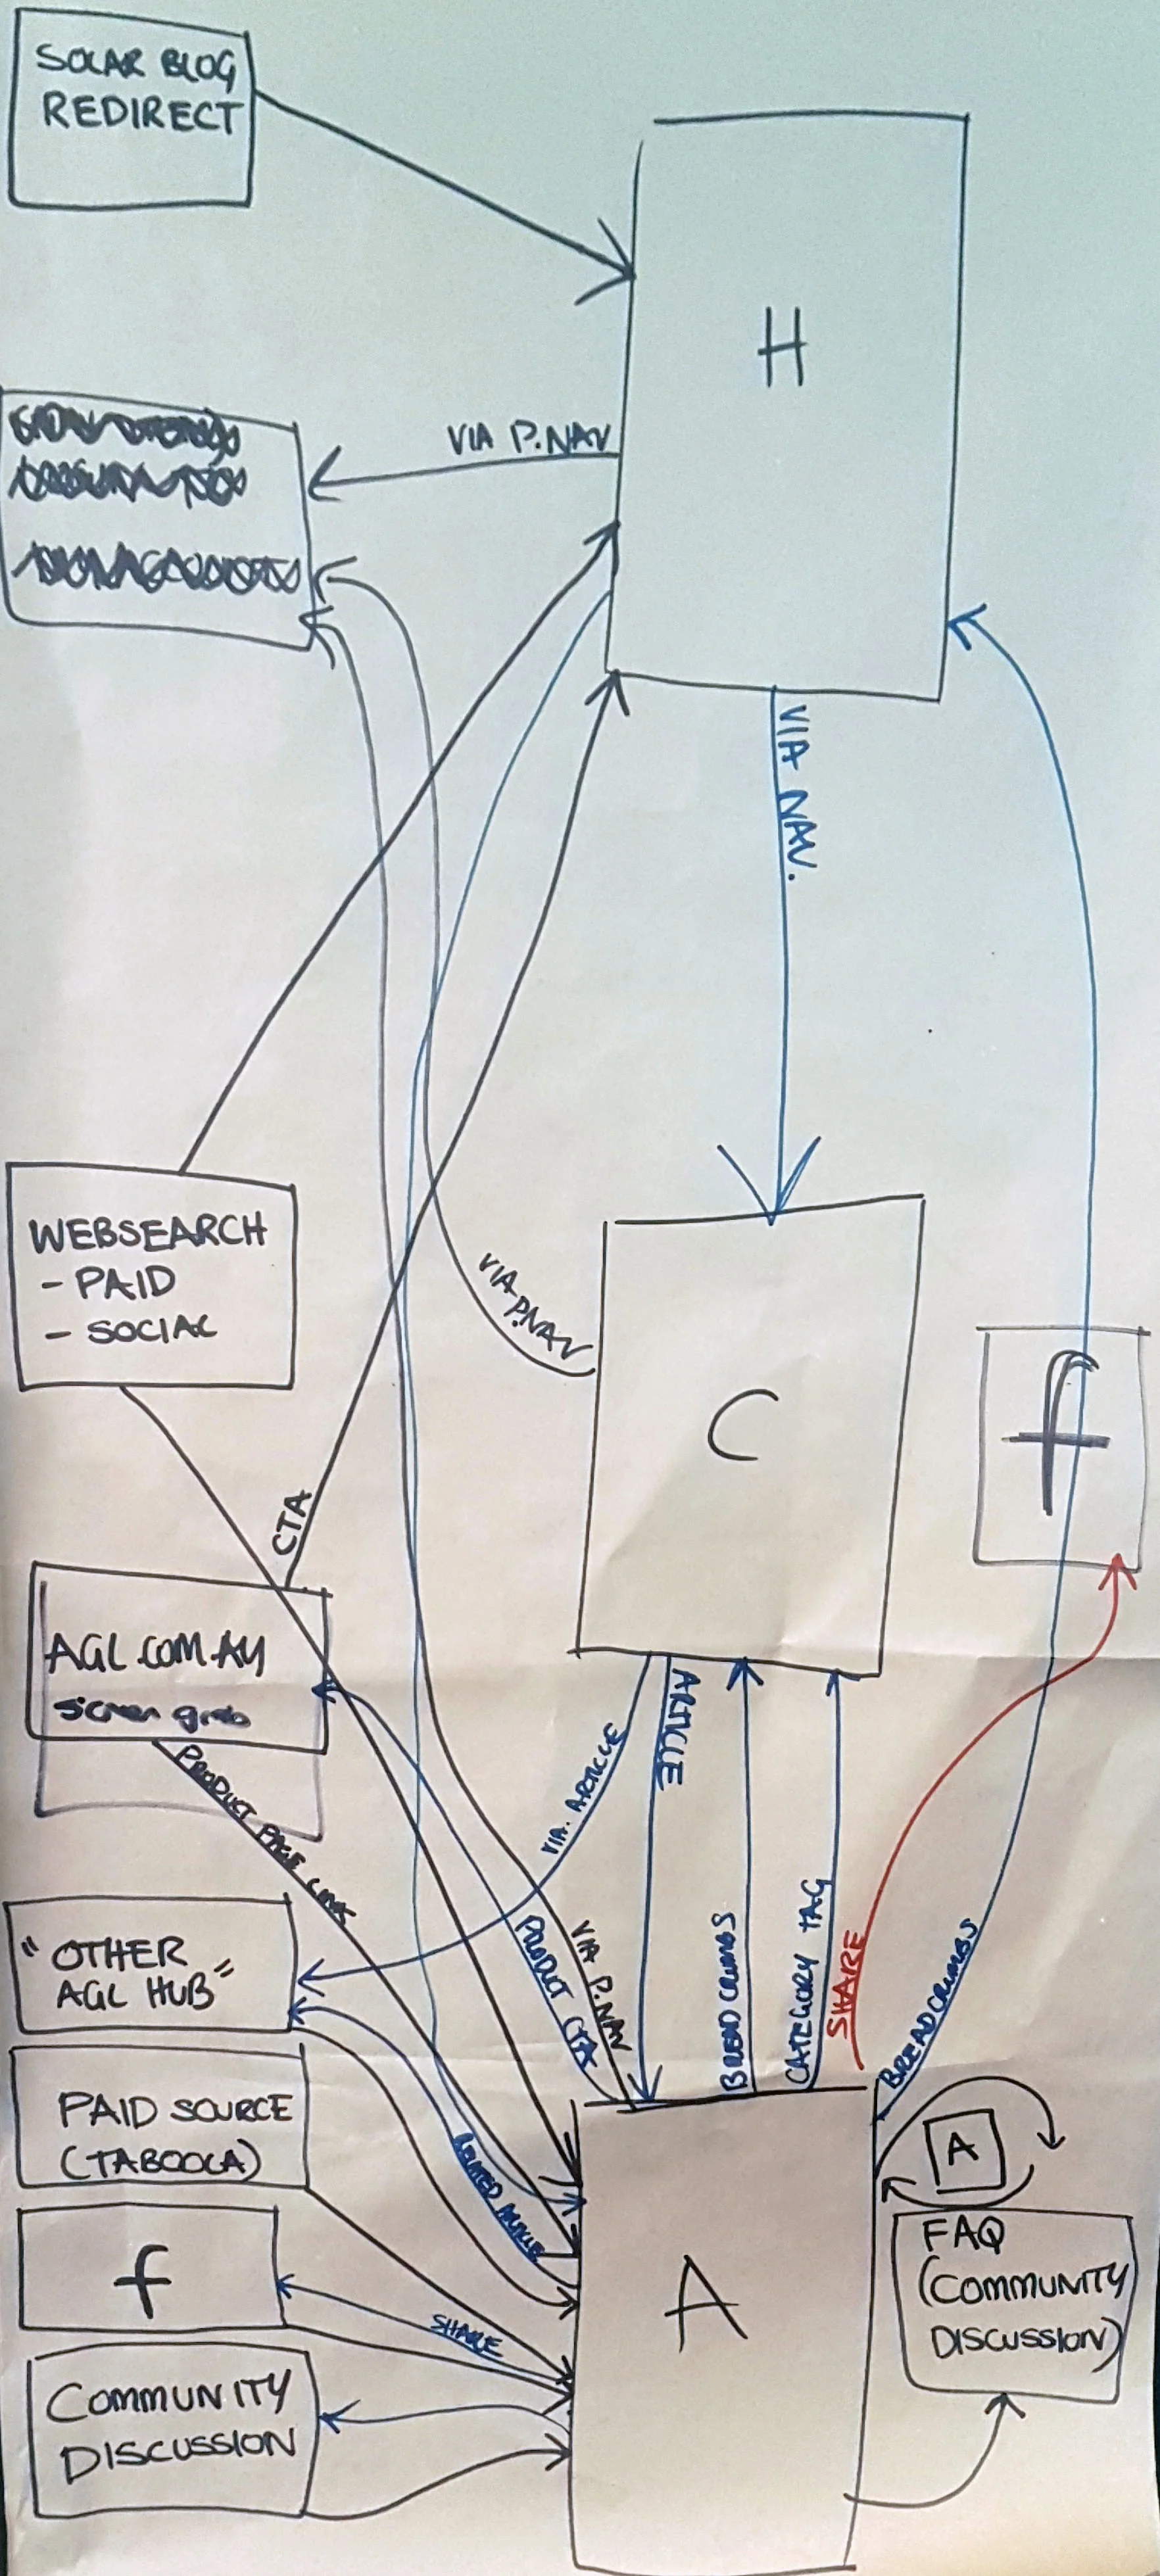 SOLAR BLOG
REDIRECT
H
VIA P.NAV
VIA NAV.
WEBSEARCH
- PAID
- SOCIAL
VIA P.NAV
C
f
CTA
AGL.COM.AU
screen grab
PRODUCT PAGE LINK
ARTICLE
VIA. ARTICLE
"OTHER
AGL HUB"
PRODUCT CTA
VIA P.NAV
BREADCRUMBS
CATEGORY TAG
SHARE
BREADCRUMBS
PAID SOURCE
(TABOOLA)
RELATED ARTICLE
A
f
SHARE
A
FAQ
(COMMUNITY
DISCUSSION)
COMMUNITY
DISCUSSION